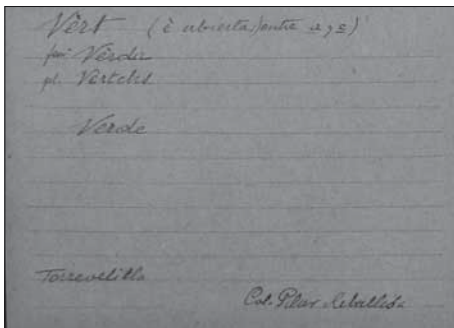 Vèrt (è abierta, entre a y e)
fem Vèrda
pl. Vèrtchs
Verde
Torrevelilla
Col. Pilar Rebullida